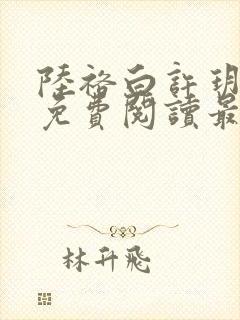 陸裕白許玥
免費閱讀最
林升飛